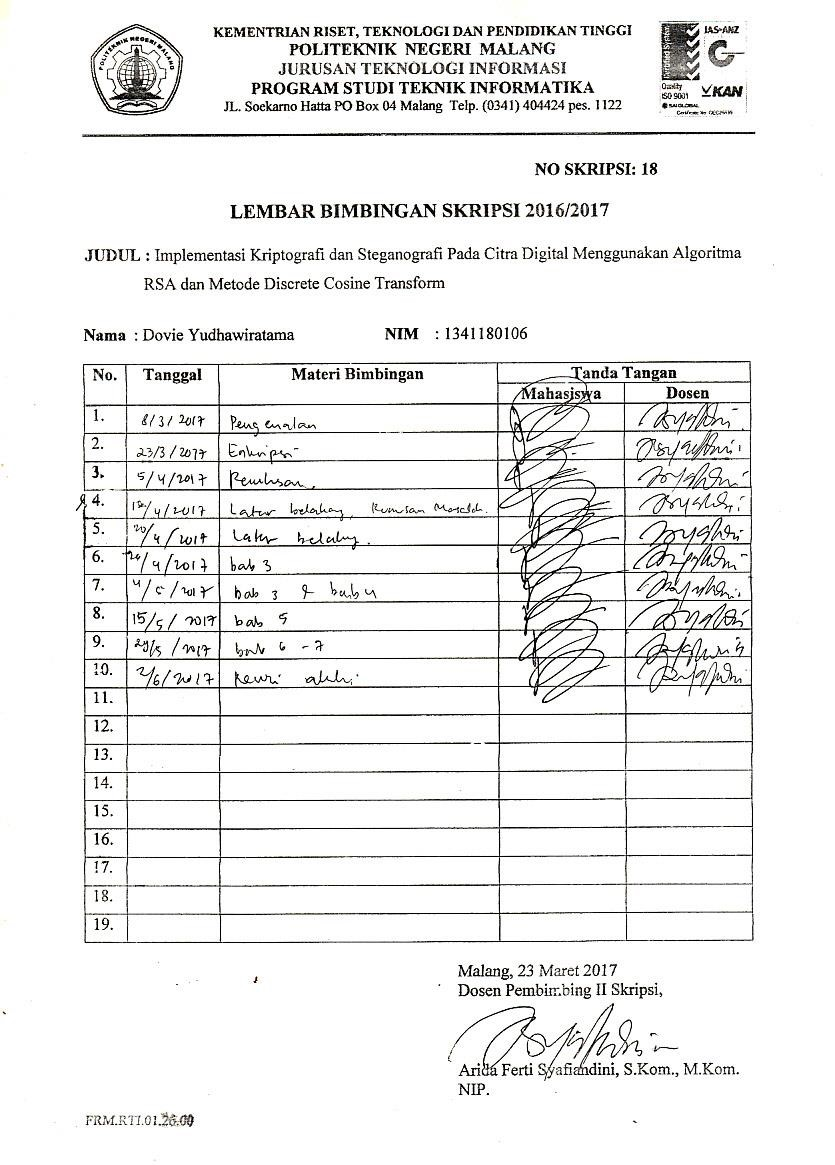 POLITEKNIK NEGERI MALANG
KEMENTRIAN RISET, TEKNOLOGI DAN PENDIDIKAN TINGGI
POLITEKNIK NEGERI MALANG
JURUSAN TEKNOLOGI INFORMASI
PROGRAM STUDI TEKNIK INFORMATIKA
JL. Soekarno Hatta PO Box 04 Malang Telp. (0341) 404424 pes. 1122
JAS-ANZ
Quality
ISO 9001
KAN
SAI GLOBAL
NO SKRIPSI: 18
LEMBAR BIMBINGAN SKRIPSI 2016/2017
JUDUL : Implementasi Kriptografi dan Steganografi Pada Citra Digital Menggunakan Algoritma
RSA dan Metode Discrete Cosine Transform
Nama : Dovie Yudhawiratama NIM : 1341180106
No. Tanggal Materi Bimbingan Tanda Tangan
Mahasiswa Dosen
1. 8/3/2017 Pengenalan
2. 23/3/2017 Enkripsi
3. 5/4/2017 Penulisan
4. /4/2017 Latar belakang, Rumusan Masalah
5. 20/4/2017 Latar belakang
6. /4/2017 bab 3
7. 4/5/2017 bab 3 & bab 4
8. 15/5/2017 bab 5
9. 29/5/2017 bab 6 - 7
10. 2/6/2017
11.
12.
13.
14.
15.
16.
17.
18.
19.
Malang, 23 Maret 2017
Dosen Pembimbing II Skripsi,
Arida Ferti Syafiandini, S.Kom., M.Kom.
NIP.
FRM.RTI.01.26.00